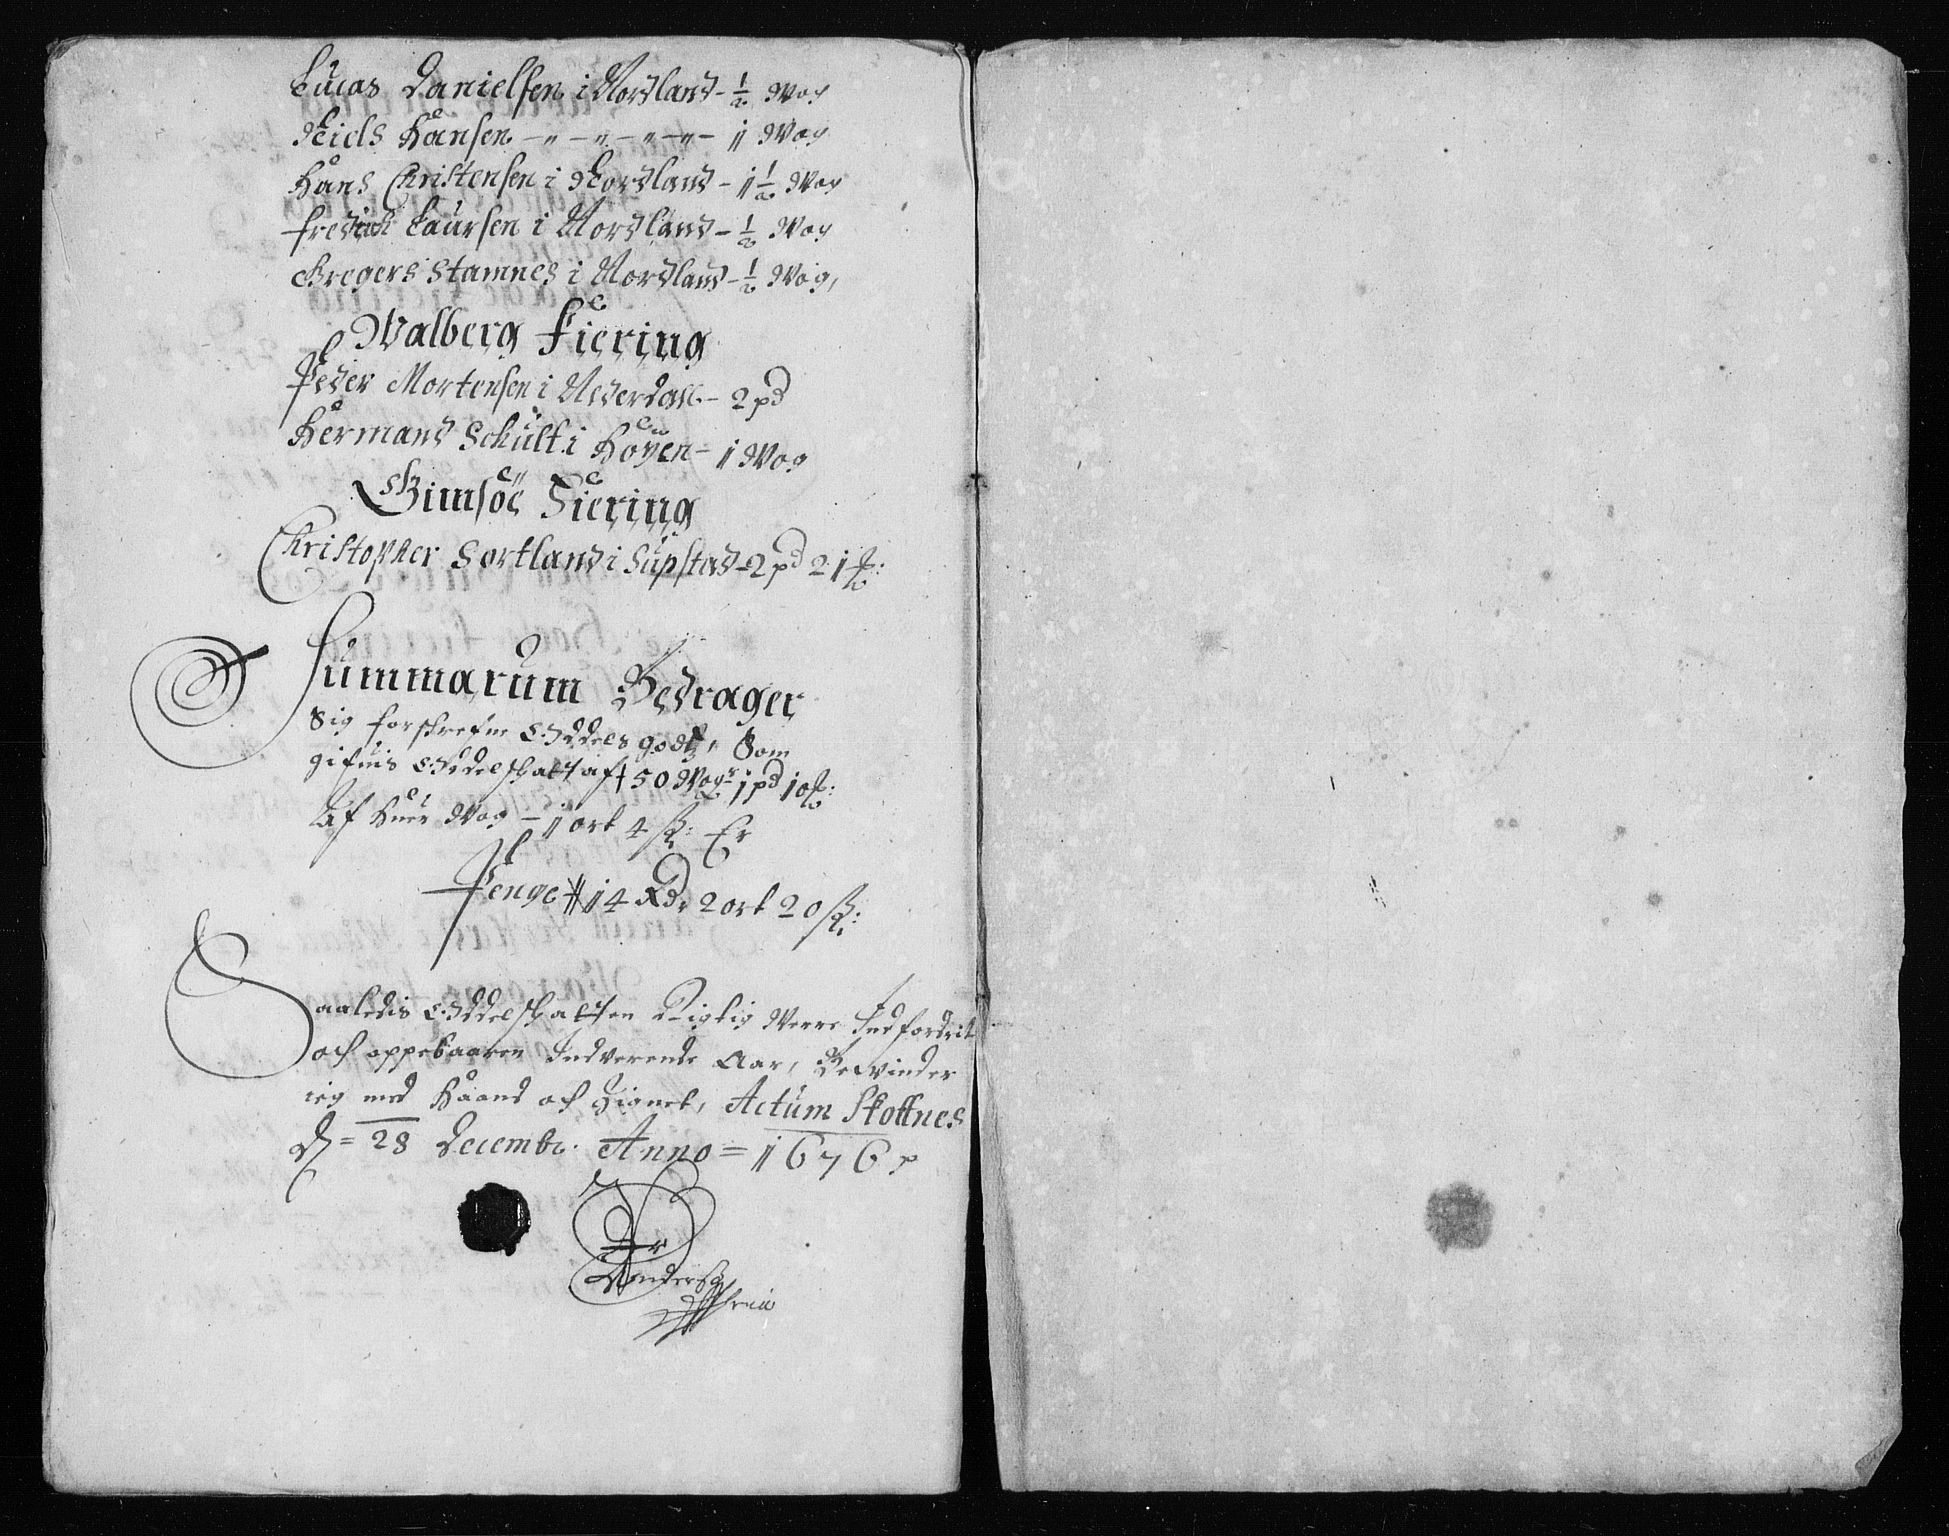 Lucas Danielsen i Nordland - ½ Wog
Niels Hansen - " - " - " - " - 1 Wog
Hans Christensen i Nordland - 1½ Wog
Fredrich Laursen i Nordland - ½ Wog
Gregers Stamnes i Nordland - ½ Wog,
Walberg Fiering
Peder Mortensen i Nederdall - 2 pd
Hermand Schult i Höyen - 1 Wog
Gimsöe Fiering
Christopher Sortland i Supstad - 2 pd 21 ℔:
Summarum Bedrager
Sig forschrefne Oddels godtz, Som
gifuis Oddelschatt af 50 Wogr 1 pd 10 ℔:
Af huer Wog - 1 ort 4 ß: Er
Penge 14 Rd. 2 ort 20 ß:
Saaledis Oddelschatten Rigtig Werre Indfordrit
och oppebaaren Indverende Aar, Bevinder
ieg med Haand och Zignet, Actum Skottnes
D = 28 Decembr. Anno = 1676
Anderß